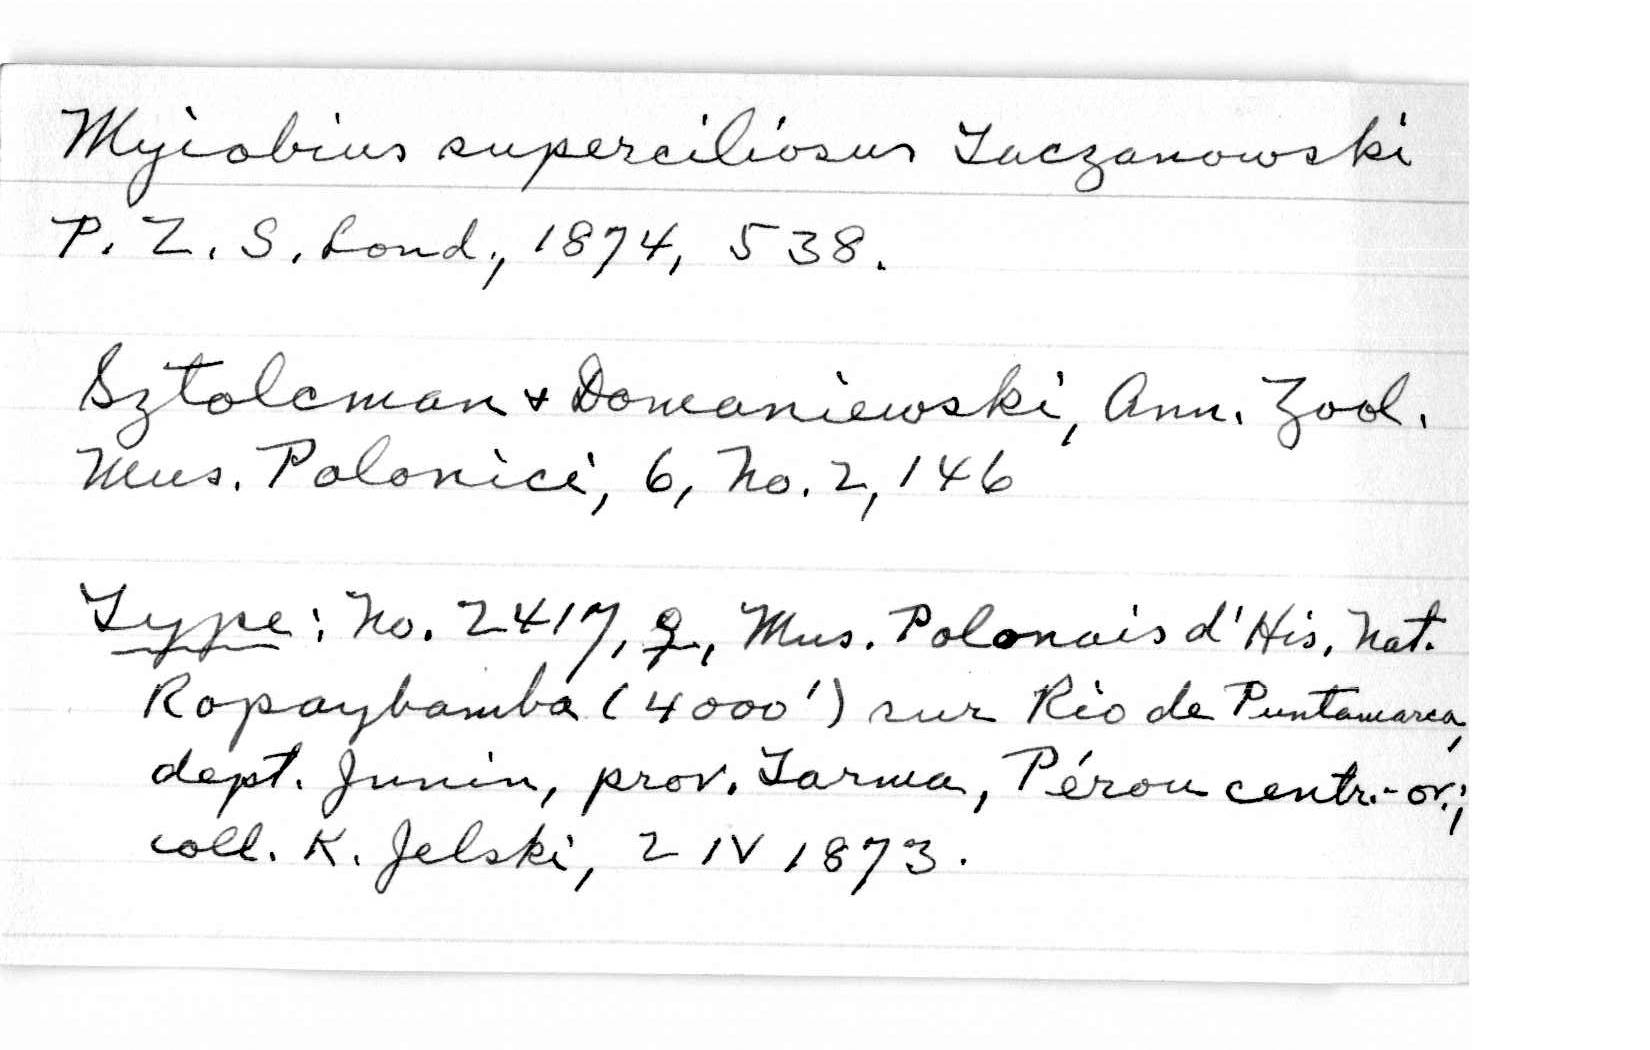 Myiobius superciliosus Taczanowski
P. Z. S. Lond., 1874, 538.
Sztolcman & Domaniewski, Ann. Zool.
Mus. Polonici, 6, No. 2, 146
Type: No. 2417, ♀, Mus. Polonais d'His. Nat.
Ropaybamba (4000') sur Rio de Puntamarca,
dept. Junin, prov. Tarma, Pérou centr.-or.;
coll. K. Jelski, 2 IV 1873.